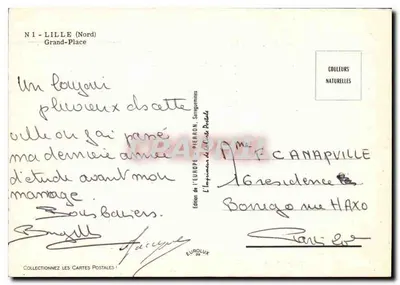 N 1 - LILLE (Nord)
Grand-Place
COULEURS
NATURELLES
Un bonjour
pluvieux de cette
ville où j'ai passé
ma dernière année
d'étude avant mon
mariage.
Bons baisers.
Jacques
Edition de l'EUROPE - PIERRON, Sarreguemines
L'Imprimeur de l'Carte Postale
EUROLUX
COLLECTIONNEZ LES CARTES POSTALES
Mme P. CANAPVILLE
16 residence
Borrego rue HAXO
Paris 20e